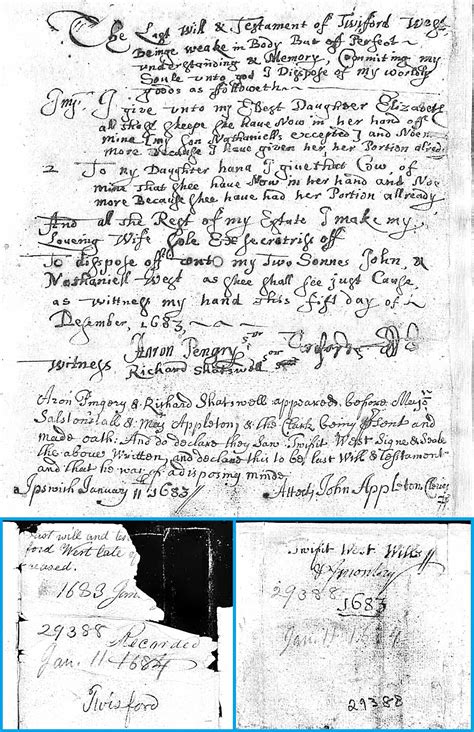 The Last Will & Testament of Twiford West
Beinge weake in Body But off Perfect
understanding & Memory, Comiting my
Soule unto god I Dispose of my worldly
goods as followeth
Imy: I give unto my Elest Daughter Elizabeth
all those sheepe she have Now in her hand off
mine I my son Nathaniells excepted I and Noen
more Because I have given her, her Portion allredy
2 To my Daughter hana I give that Cow of
mine that shee have Now in her hand and Noe
more Because shee have had her Portion allready
And all the Rest of my Estate I make my
Loveing Wife Sole Exsecetriss off
To disspose off unto my Two Sonnes John, &
Nathaniell West as shee shall see just Cause,
as wittness my hand This fift day of
Desember, 1683,
Aaron Pengry senr Twiford
Witness Richard Shatswell senr
Aron Pingery & Richard Shatswell appeared before Majr
Salstonstall & Majr Appleton & the Clark being Psent and
made oath: And do declare they Saw Twifit West Signe & Seale
the above Written, and declare this to be last Will & Testament
and that he was of a disposing minde
Ipswich January 11th 1683// Attests John Appleton Cleric
last will and tes
ford West late of
ceased.
1683 Jan
29388 Recorded
Jan. 11 1684
Twisford
Twifit West Will
& Inventory
29388
1683
Jan. 11 1684
29388